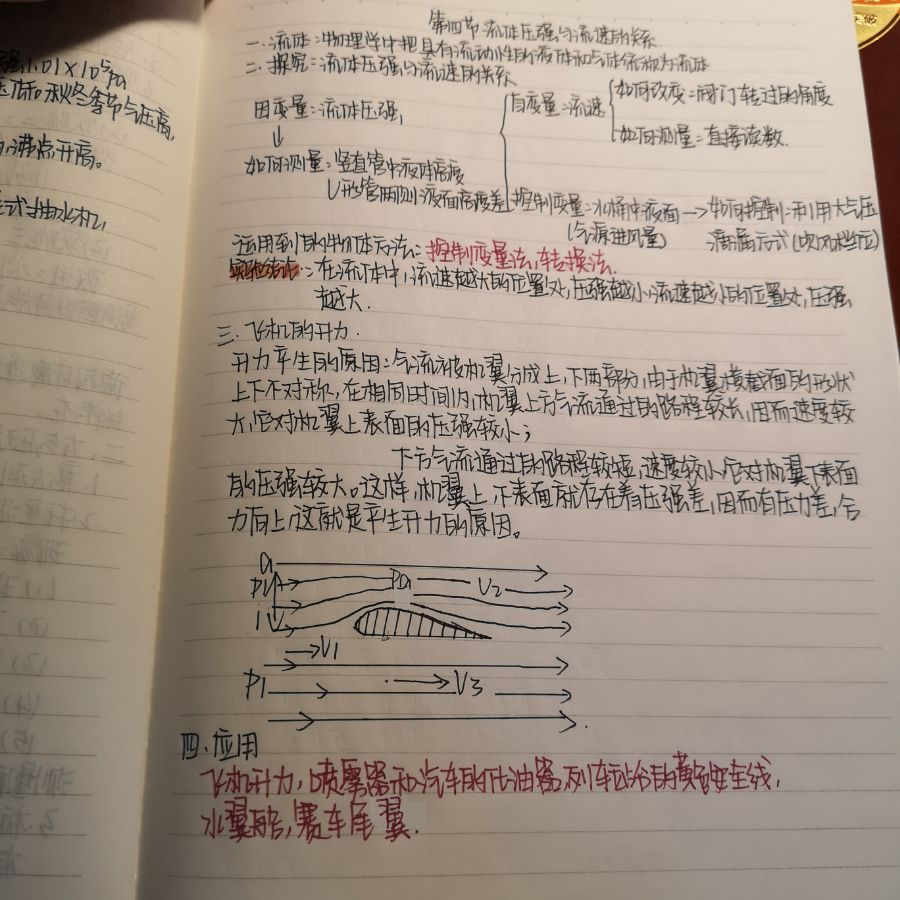 强1.01×10⁵pa
秋冬季节气压高,
沸点升高。
式抽水机,
第四节 流体压强与流速的关系
一.流体:物理学中把具有流动性的液体和气体统称为流体
二.探究:流体压强与流速的关系
因变量:流体压强,
自变量:流速
如何改变:阀门转过的角度
如何测量:直接读数.
如何测量:竖直管中液体高度
U形管两侧液面高度差
控制变量:水桶中液面→如何控制:利用大气压
(气源进风量)
满届方式(吹风档位)
运用到的物体方法:控制变量法,转换法.
实验结论:在流体中,流速越大的位置处,压强越小,流速越小的位置处,压强
越大.
三.飞机的升力.
升力产生的原因:气流被机翼分成上,下两部分,由于机翼横截面的形状
上下不对称,在相同时间内,机翼上方气流通过的路程较长,因而速度较
大,它对机翼上表面的压强较小;
下方气流通过的路程较短,速度较小,它对机翼下表面
的压强较大。这样,机翼上,下表面就存在着压强差,因而有压力差,合
力向上,这就是产生升力的原因。
V2
V1
P1
V3
四.应用
飞机升力,喷雾器和汽车的化油器,列车站台的黄色安全线,
水翼船,赛车尾翼.